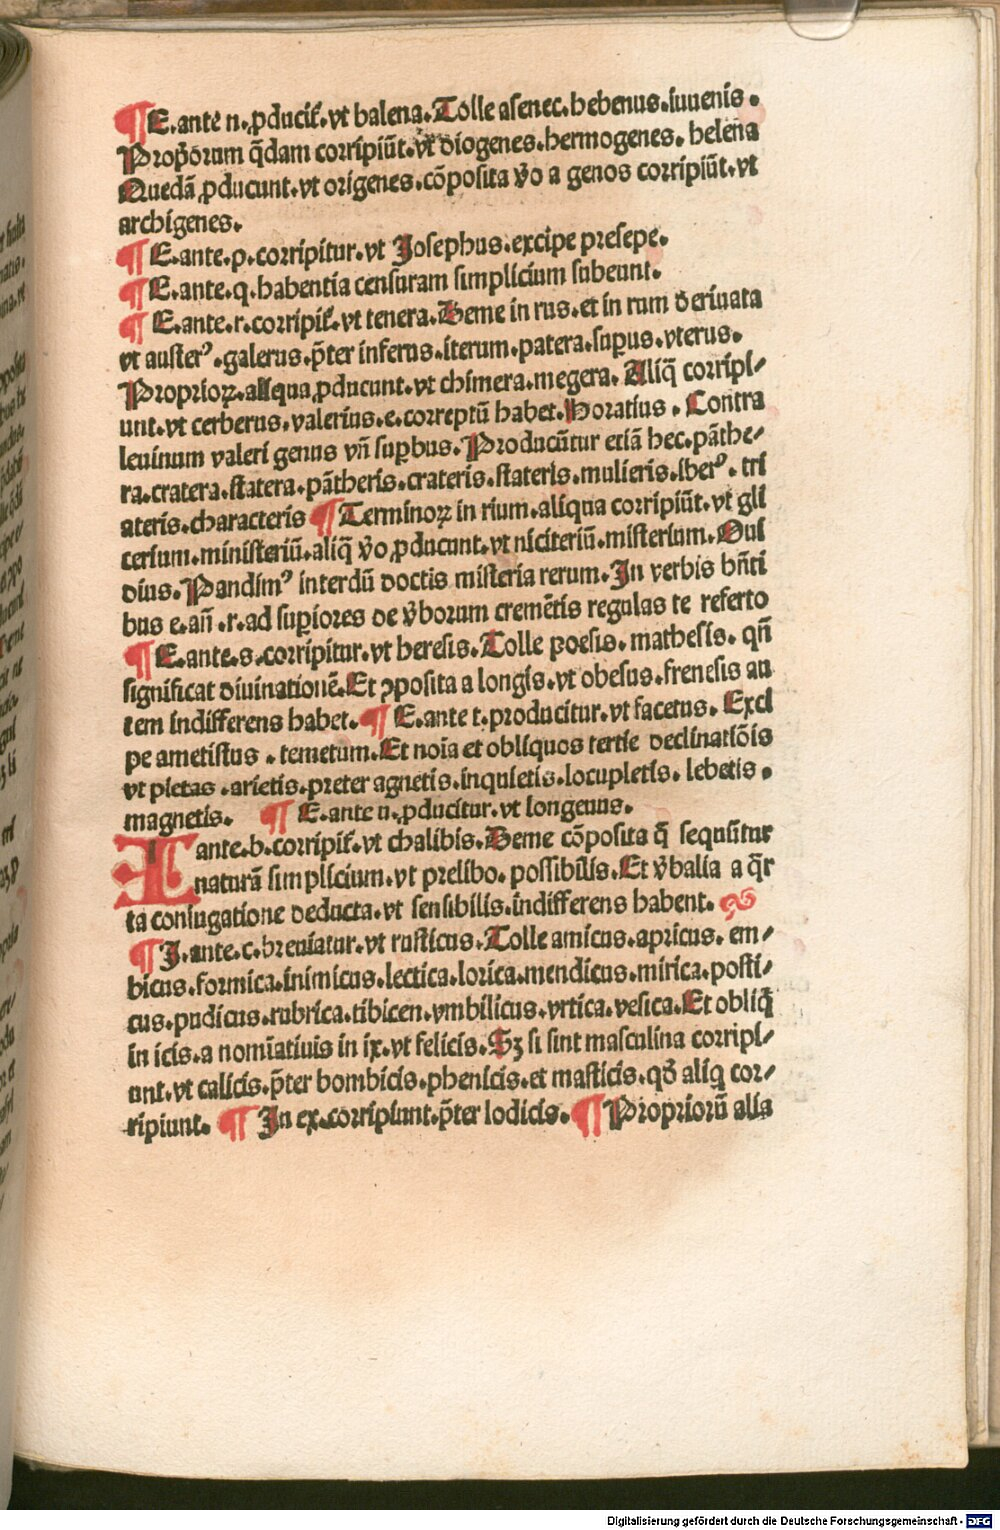 ¶ E.ante n.ꝓducit᷑.vt balena.Tolle asenec.hebenus.iuuenis.
Propͥorum q̄dam corripiūt.vt diogenes.hermogenes.helena
Quedā ꝓducunt.vt origenes.cōposita v̾o a genos corripiūt.vt
archigenes.
¶ E.ante.p.corripitur.vt Josephus.excipe presepe.
¶ E.ante.q.habentia censuram simplicium subeunt.
¶ E.ante.r.corripit᷑.vt tenera.Deme in rus.et in rum deriuata
vt austerꝰ.galerus.p̄ter inferus.iterum.patera.suꝑus.vterus.
Proprioꝝ.aliqua ꝓducunt.vt chimera.megera.Aliq̄ corripi⸗
unt.vt cerberus.valerius.e.correptū habet.Horatius.Contra
leuinum valeri genus vn̄ suꝑbus.Producūtur etiā hec.pāthe⸗
ra.cratera.statera.pātheris.crateris.stateris.mulieris.iberꝰ.tri
ateris.characteris ¶ Terminoꝝ in rium.aliqua corripiūt.vt gli
cerium.ministeriū.aliq̄ v̾o ꝓducunt.vt niciteriū.misterium.Oui
dius.Pandimꝰ interdū doctis misteria rerum.In verbis hn̄ti
bus e.an̄.r.ad suꝑiores de v̾borum cremētis regulas te referto
¶ E.ante.s.corripitur.vt heresis.Tolle poesis.mathesis.qn̄
significat diuinationē.Et ꝯposita a longis.vt obesus.frenesis au
tem indifferens habet.¶ E.ante t.producitur.vt facetus.Exci
pe ametistus.temetum.Et noīa et obliquos tertie declinatiōis
vt pietas.arietis.preter agnetis.inquietis.locupletis.lebetis.
magnetis. ¶ E.ante u.ꝓducitur.vt longeuus.
I ante.b.corripit᷑.vt chalibis.Deme cōposita q̄ sequūtur
naturā simplicium.vt prelibo.possibilis.Et v̾balia a q̄r
ta coniugatione deducta.vt sensibilis.indifferens habent.
¶ I.ante.c.breuiatur.vt rusticus.Tolle amicus.apricus.em⸗
bicus.formica.inimicus.lectica.lorica.mendicus.mirica.posti⸗
cus.pudicus.rubrica.tibicen.vmbilicus.vrtica.vesica.Et obliq̄
in icis.a nomīatiuis in ix.vt felicis.Sꝫ si sint masculina corripi⸗
unt.vt calicis.p̄ter bombicis.phenicis.et masticis.qd̾ aliq cor⸗
ripiunt. ¶ In ex.corripiunt.p̄ter lodicis.¶ Propriorū alia
Digitalisierung gefördert durch die Deutsche Forschungsgemeinschaft - DFG